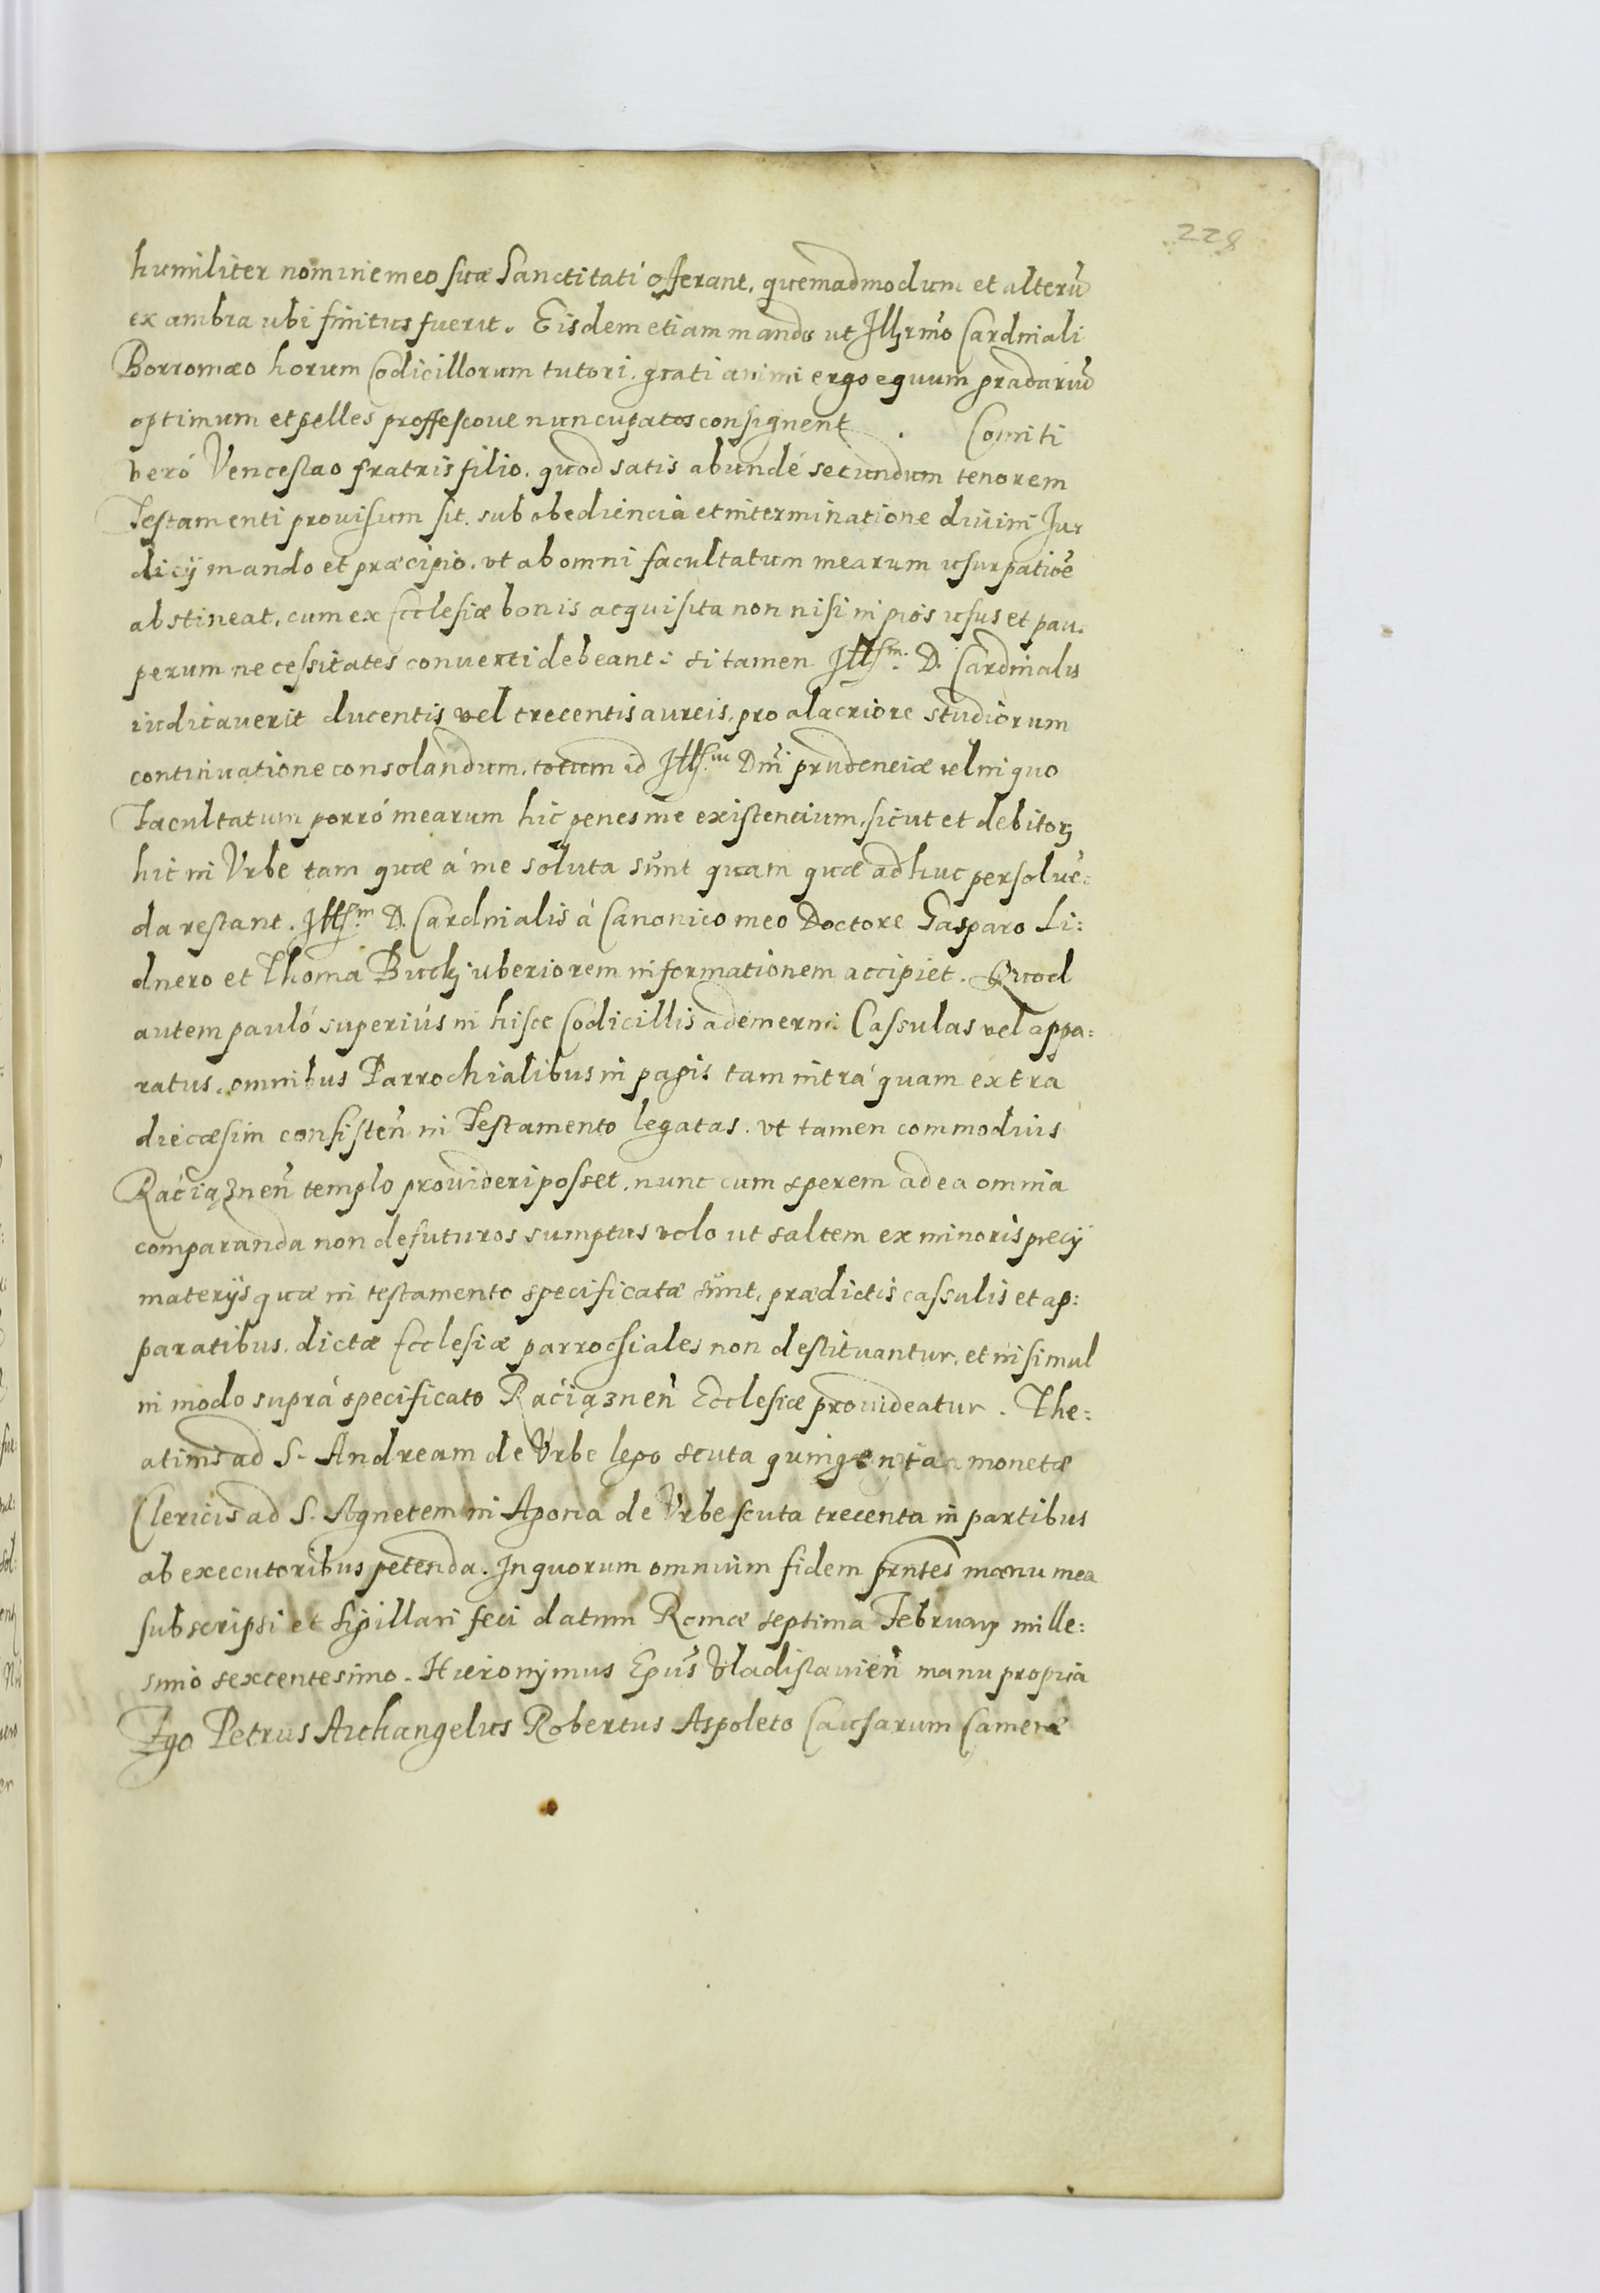 228
humiliter nomine meo suæ Sanctitati offerant, quemadmodum et alterũ
ex ambra ubi finitus fuerit. Eisdem etiam mando ut Illr̃mo Cardinali
Borromæo horum Codicillorum tutori, grati animi ergo equum gradariũ
optimum et pelles proffescoue nuncupatos consignent . Comiti
veró Venceslao fratris filio, quod satis abundé secundum tenorem
Testamenti prouisum sit, sub obediencia et interminatione diuini Iu
dicÿ mando et præcipio, vt ab omni facultatum mearum usurpatiõe
abstineat, cum ex Ecclesiæ bonis acquisita non nisi in pios usus et pau.
perum necessitates conuerti debeant: si tamen Illsm. D. Cardinalis
iudicauerit ducentis vel trecentis aureis, pro alacriore studiorum
continuatione consolandum, totum id Illsm Dñi prudenciæ relinquo
Facultatum porró mearum hic penes me existencium, sicut et debitoꝝ
hic in Vrbe tam quæ á me soluta sunt quam quæ adhuc persoluẽ:
da restant, Illsm D. Cardinalis á Canonico meo Doctore Gasparo Li:
dnero et Thoma Buckj uberiorem informationem accipiet. Quod
autem pauló superiús in hisce Codicillis ademerim Cassulas vel appa:
ratus, omnibus Parrochialibus in pagis tam intrá quam extra
diecæsim consisteñ in Testamento legatas, vt tamen commodius
Raciązneñ templo prouideri posset, nunc cum sperem ad ea omnia
comparanda non defuturos sumptus volo ut saltem ex minoris precÿ
materÿs quæ in testamento specificatæ sunt, prædictis cassulis et ap:
paratibus, dictæ Ecclesiæ parrochiales non destituantur, et nisimul
in modo suprá specificato Raciązneñ Ecclesiæ prouideatur. The:
atinis ad S. Andream de Vrbe lego scuta quingenta monetæ
Clericis ad S. Agnetem in Agona de Vrbe scuta trecenta in partibus
ab executoribus petenda. In quorum omnium fidem pr̃ntes manu mea
subscripsi et sigillari feci datum Romæ septima Februarÿ mille:
simo sexcentesimo. Hieronymus Epũs Vladislauieñ manu propria
Ego Petrus Archangelus Robertus Aspoleto Causarum Cameræ